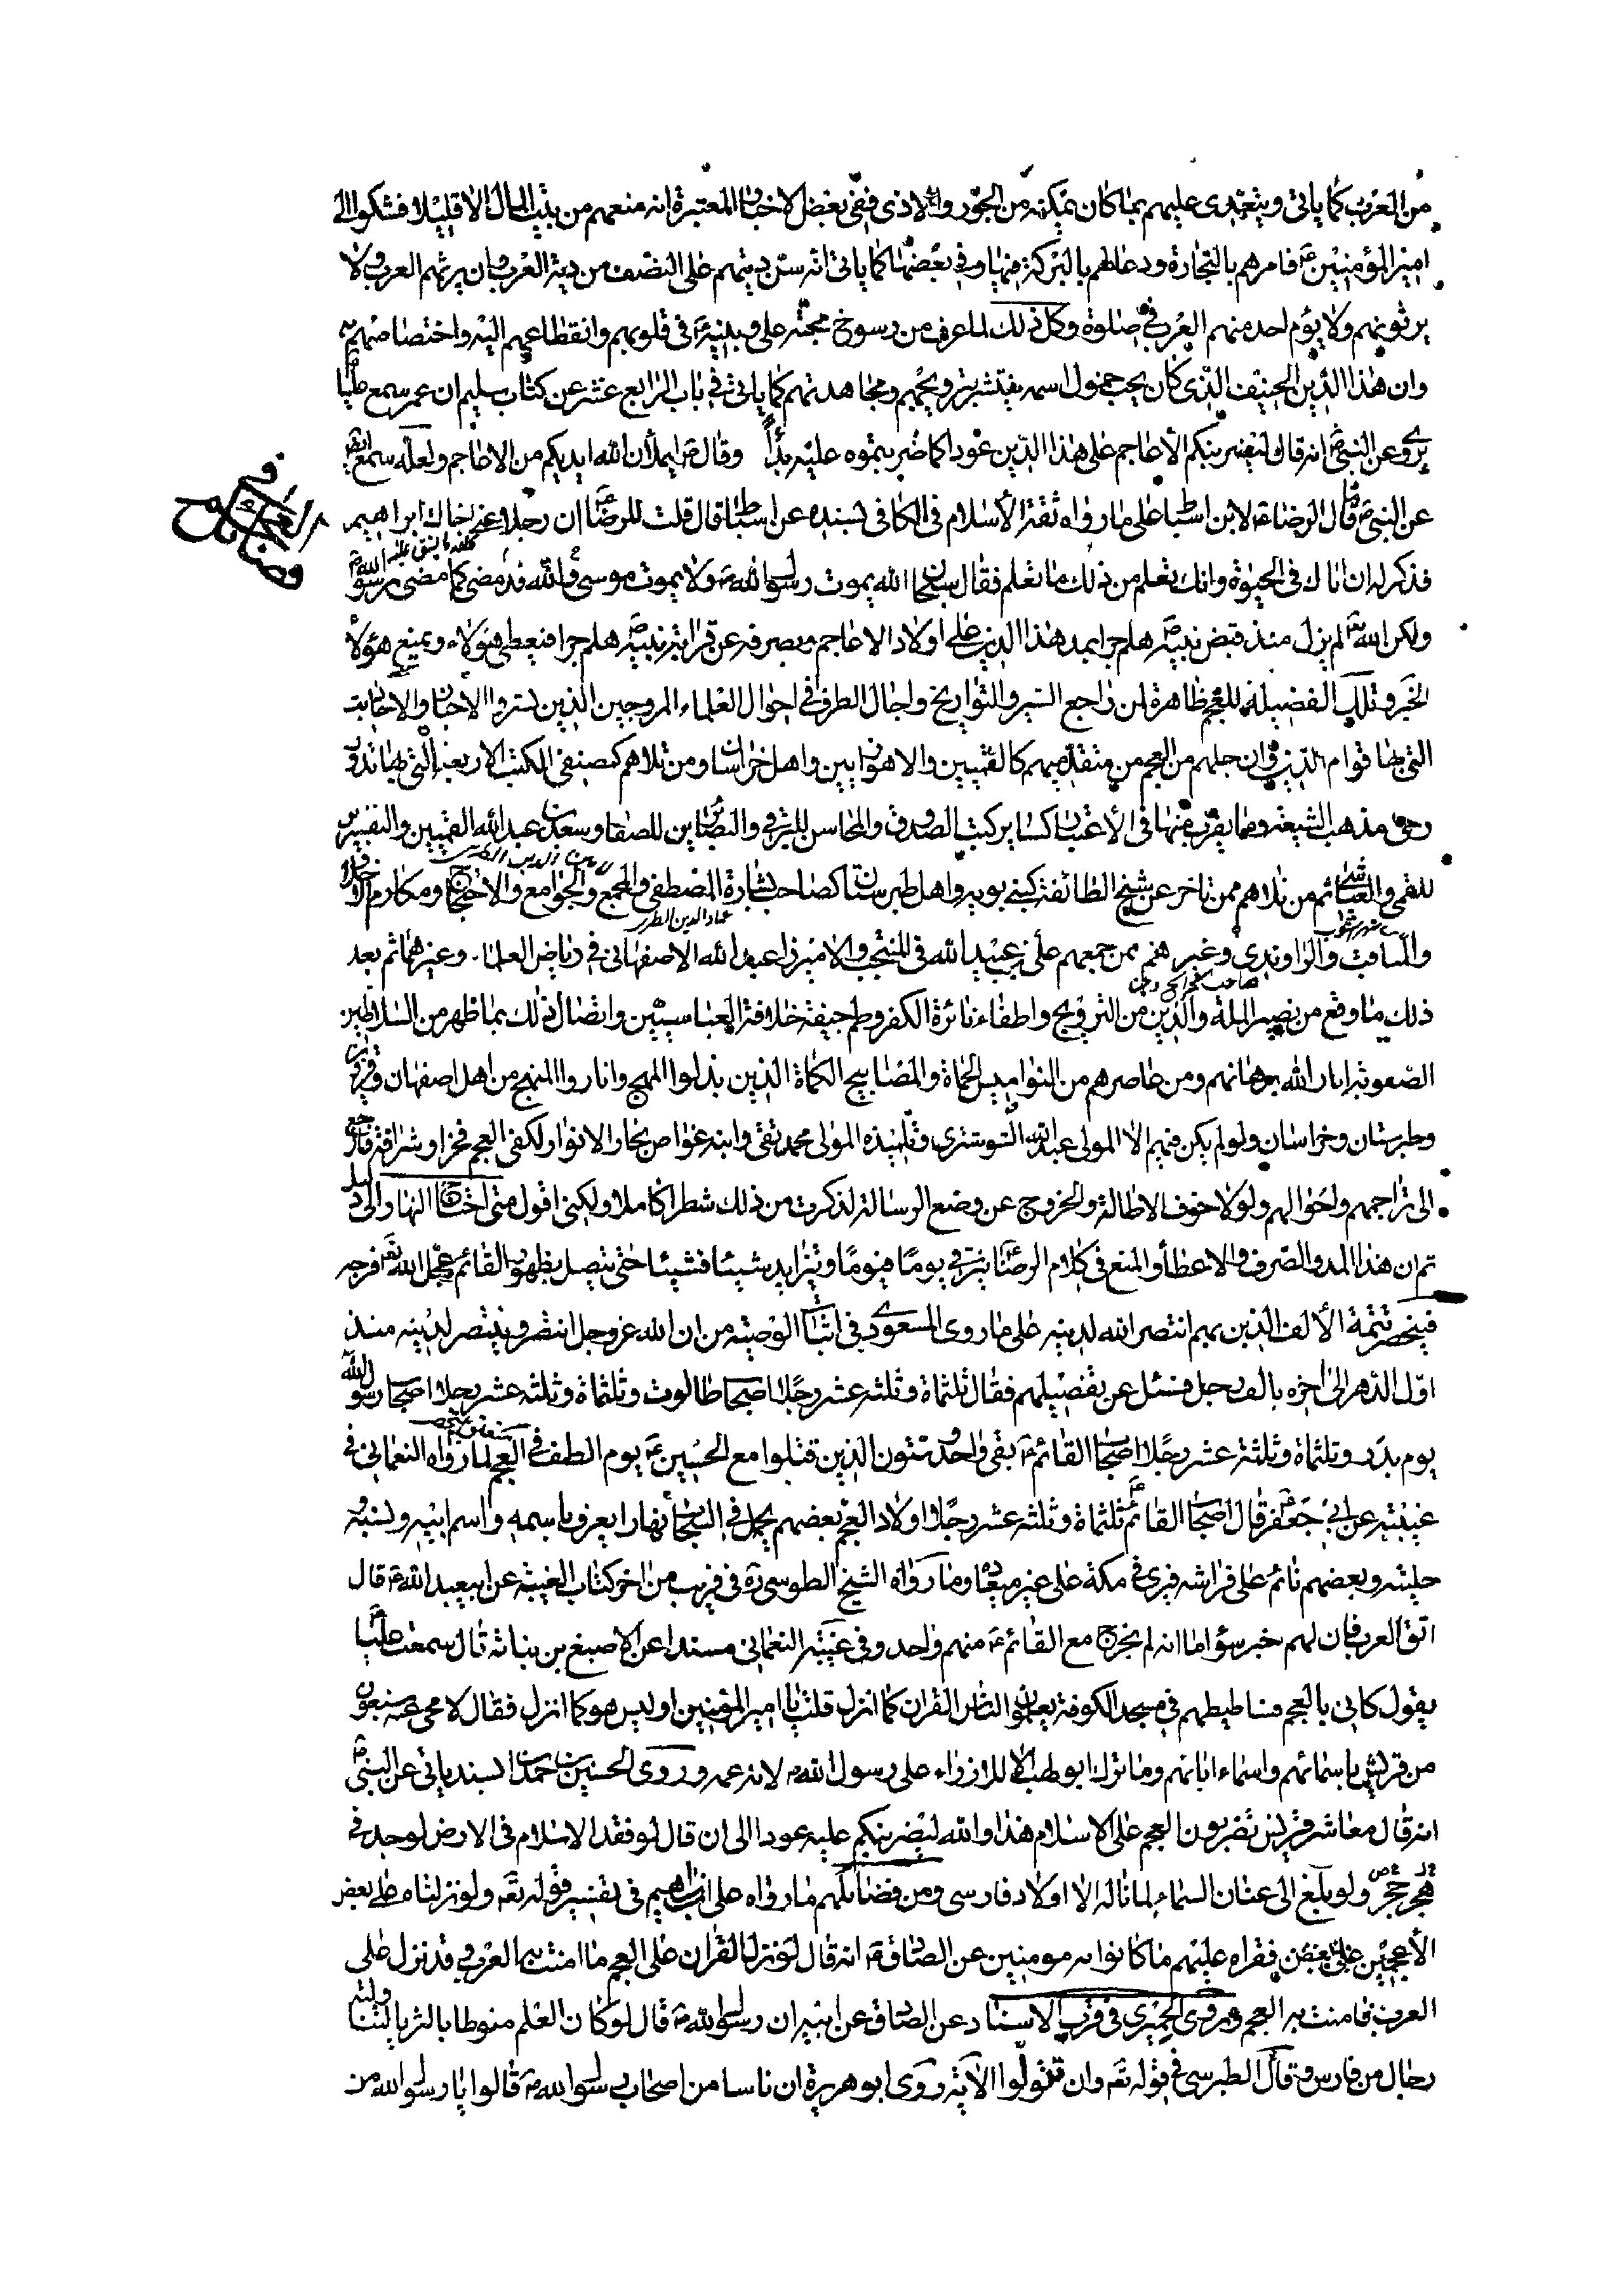 من العرب كما ياتى ويتعدى عليهم بما كان يمكنه من الجور والاذى ففى بعض الاخبار المعتبرة انه منعهم من بيت المال الا قليلا فشكوا الى
امير المؤمنين ع فامرهم بالتجارة ودعا لهم بالبركة فيها وفى بعضها كما ياتى انه سن ديتهم على النصف من دية العرب وان يرثهم العرب ولا
يرثونهم ولا يؤم احد منهم العرب فى صلوة وكل ذلك لما عرف من رسوخ محبة على وبنيه فى قلوبهم وانقطاعهم اليه واختصاصهم به
وان هذا الدين الحنيف الذى كان يحب خمول اسمه ينتشر بهم ومجاهدتهم كما ياتى فى باب الرابع عشر عن كتاب سليم ان عمر سمع عليا
يروى عن النبى ص انه قال وليضربنكم الاعاجم على هذا الدين عودا كما ضربتموه عليه بدأ وقال ص ليملأن الله ايديكم من الاعاجم ولعله سمع ايضا
عن النبى ص قال الرضا ع لابن اسباط على ما رواه ثقة الاسلام فى الكافى بسنده عن اسباط قال قلت للرضا ان رجلا غر اخاك ابراهيم
فذكر له ان اباك فى الحيوة وانك تعلم من ذلك ما تعلم فقال سبحان الله يموت رسول الله ص ولا يموت موسى ع والله قد مضى كما مضى رسول الله ص
ولكن الله لم يزل منذ قبض نبيه ص هلم جرا يمد هذا الدين على اولاد الاعاجم ويصرفه عن قرابة نبيه ص هلم جرا فيعطى هؤلاء ويمنع هؤلاء
الخبر وتلك الفضيلة للعجم ظاهرة لمن راجع السير والتواريخ واجال الطرف فى احوال العلماء المروجين الذين نشروا الاخبار والاحاديث
التى بها قوام الدين فان جلهم من العجم من متقدميهم كالقميين والاهوازيين واهل خراسان ومن تلاهم كمصنفى الكتب الاربعة التى بها تدور
رحى مذهب الشيعة وما يقرب منها فى الاعتبار كساير كتب الصدوق والمحاسن للبرقى والبصاير للصفار وسعد بن عبد الله القميين والتفسيرين
للقمى والعياشى ثم من تلاهم ممن تاخر عن شيخ الطائفة كبنى بويه واهل طبرستان كصاحب بشارة المصطفى والمجمع والجوامع والاحتجاج ومكارم الاخلاق
عماد الدين الطبرى
والمناقب والراوندى وغيرهم ممن جمعهم على بن عبيد الله فى المنتجب والاميرزا عبد الله الاصفهانى فى رياض العلماء وغيرهما ثم بعد
ذلك ما وقع من نصير الملة والدين من الترويج واطفاء نائرة الكفر وطم جيفة خلافة العباسيين واتصال ذلك بما ظهر من السلاطين
الصفوية انار الله برهانهم ومن عاصرهم من النواميس الحماة والمصابيح الكماة الذين بذلوا المهج واناروا المنهج من اهل اصفهان وقزوين
وطبرستان وخراسان ولو لم يكن فيهم الا المولى عبد الله التسوشترى وتلميذه المولى محمد تقى وابنه غواص بحار الانوار لكفى العجم فخرا وشرافة فارجع
الى تراجمهم واحوالهم ولولا خوف الاطالة والخروج عن وضع الرسالة لذكرت من ذلك شطرا كاملا ولكنى اقول متى احتاج النهار الى دليل
ثم ان هذا المد والصرف والاعطاء والمنع فى كلام الرضا ع يترقى يوما فيوما ويتزايد شيئا فشيئا حتى يتصل بظهور القائم عجل الله تع فرجه
فينحصر تتمة الالف الذين بهم انتصر الله لدينه على ما روى المسعودى فى اثبات الوصية من ان الله عز وجل انتصر وينتصر لدينه منذ
اول الدهر الى اخره بالف رجل فسئل عن تفصيلهم فقال ثلثماة وثلثة عشر رجلا اصحاب طالوت وثلثماة وثلثة عشر رجلا اصحاب رسول الله
يوم بدر وثلثماة وثلثة عشر رجلا اصحاب القائم ع بقى واحد وستون الذين قتلوا مع الحسين ع يوم الطف فى العجم لما رواه النعمانى فى
غيبته عن ابى جعفر قال اصحاب القائم ع ثلثماة وثلثة عشر رجلا اولاد العجم بعضهم يحمل فى السحاب نهارا يعرف باسمه واسم ابيه ونسبه و
حليته وبعضهم نائم على فراشه فيرى فى مكة على غير ميعاد وما رواه الشيخ الطوسى ره فى قريب من اخر كتاب الغيبة عن ابيعبد الله ع قال
اتق العرب فان لهم خبر سوء اما انه لم يخرج مع القائم ع منهم واحد وفى غيبة النعمانى مسندا عن الاصبغ بن بناتة قال سمعت عليا
يقول كانى بالعجم فساطيطهم فى مسجد الكوفة يعلمون الناس القران كما انزل قلت يا امير المؤمنين اوليس هو كما انزل فقال لا محى عنه سبعون
من قريش باسمائهم واسماء ابائهم وما ترك ابو لهب الا للازراء على رسول الله لانه عمه وروى الحسين بن حمدان بسند ياتى عن النبى ص
انه قال معاشر قريش تضربون العجم على الاسلام هذا والله ليضربنكم عليه عودا الى ان قال لو فقد الاسلام فى الارض لوجد فى
هجر ولو بلغ الى عنان السماء لما ناله الا اولاد فارسى ومن فضائلهم ما رواه على بن ابراهيم فى تفسير قوله تع ولو نزلناه على بعض
الاعجمين فقراه عليهم ما كانوا به مومنين عن الصادق ع انه قال لو نزل القران على العجم ما امنت به العرب وقد نزل على
العرب فامنت به العجم وروى الحميرى فى قرب الاسناد عن الصادق عن ابيه ان رسول الله ص قال لو كان العلم منوطا بالثريا لتناولته
رجال من فارس وقال الطبرسى فى قوله تع وان تتولوا الآية روى ابو هريرة ان ناسا من اصحاب رسول الله ص قالوا يا رسول الله من